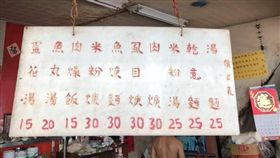 湯意麵 25
乾意麵 25
米粉湯 25
肉焿 30
虱目焿 30
魚焿麵 30
米粉焿 30
肉燥飯 15
魚丸湯 20
蛋花湯 15